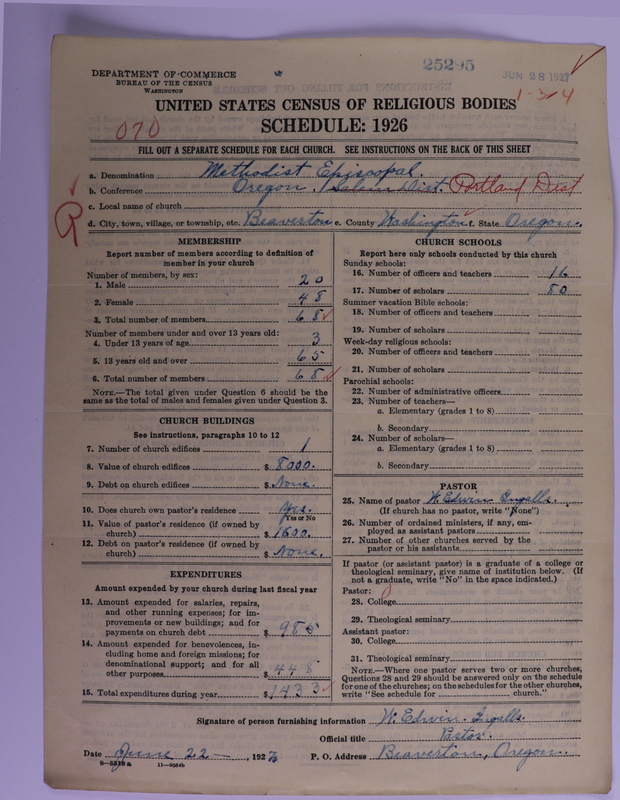 25295
JUN 28 1927
1-3/4
DEPARTMENT OF COMMERCE
BUREAU OF THE CENSUS
WASHINGTON
UNITED STATES CENSUS OF RELIGIOUS BODIES
070
SCHEDULE: 1926
FILL OUT A SEPARATE SCHEDULE FOR EACH CHURCH. SEE INSTRUCTIONS ON THE BACK OF THIS SHEET
a. Denomination Methodist Episcopal.
b. Conference Oregon Salem Dist. Portland Dist
c. Local name of church
R
d. City, town, village, or township, etc. Beaverton e. County Washington f. State Oregon.
MEMBERSHIP
Report number of members according to definition of
member in your church
Number of members, by sex:
1. Male 20
2. Female 48
3. Total number of members 68
Number of members under and over 13 years old:
4. Under 13 years of age 3
5. 13 years old and over 65
6. Total number of members 68
NOTE.—The total given under Question 6 should be
same as the total of males and females given under Question 3.
CHURCH BUILDINGS
See instructions, paragraphs 10 to 12
7. Number of church edifices 1
8. Value of church edifices $ 8000.
9. Debt on church edifices $ None.
10. Does church own pastor's residence? Yes.
Yes or No
11. Value of pastor's residence (if owned by
church) $ 1600.
12. Debt on pastor's residence (if owned by
church) $ None.
EXPENDITURES
Amount expended by your church during last fiscal year
13. Amount expended for salaries, repairs,
and other running expenses; for im-
provements or new buildings; and for
payments on church debt $ 985
14. Amount expended for benevolences, in-
cluding home and foreign missions; for
denominational support; and for all
other purposes $ 448
15. Total expenditures during year $ 1433
CHURCH SCHOOLS
Report here only schools conducted by this church
Sunday schools:
16. Number of officers and teachers 16
17. Number of scholars 80
Summer vacation Bible schools:
18. Number of officers and teachers
19. Number of scholars
Week-day religious schools:
20. Number of officers and teachers
21. Number of scholars
Parochial schools:
22. Number of administrative officers
23. Number of teachers—
a. Elementary (grades 1 to 8)
b. Secondary
24. Number of scholars—
a. Elementary (grades 1 to 8)
b. Secondary
PASTOR
25. Name of pastor W. Edwin Ingalls.
(If church has no pastor, write "None")
26. Number of ordained ministers, if any, em-
ployed as assistant pastors
27. Number of other churches served by the
pastor or his assistants
If pastor (or assistant pastor) is a graduate of a college or
theological seminary, give name of institution below. (If
not a graduate, write "No" in the space indicated.)
Pastor:
28. College
29. Theological seminary
Assistant pastor:
30. College
31. Theological seminary
NOTE.—Where one pastor serves two or more churches,
Questions 28 and 29 should be answered only on the schedule
for one of the churches; on the schedules for the other churches,
write "See schedule for church."
Signature of person furnishing information W. Edwin Ingalls
Official title Pastor.
Date June 22 —, 1927 P. O. Address Beaverton, Oregon.
8-5518a 11-9054b